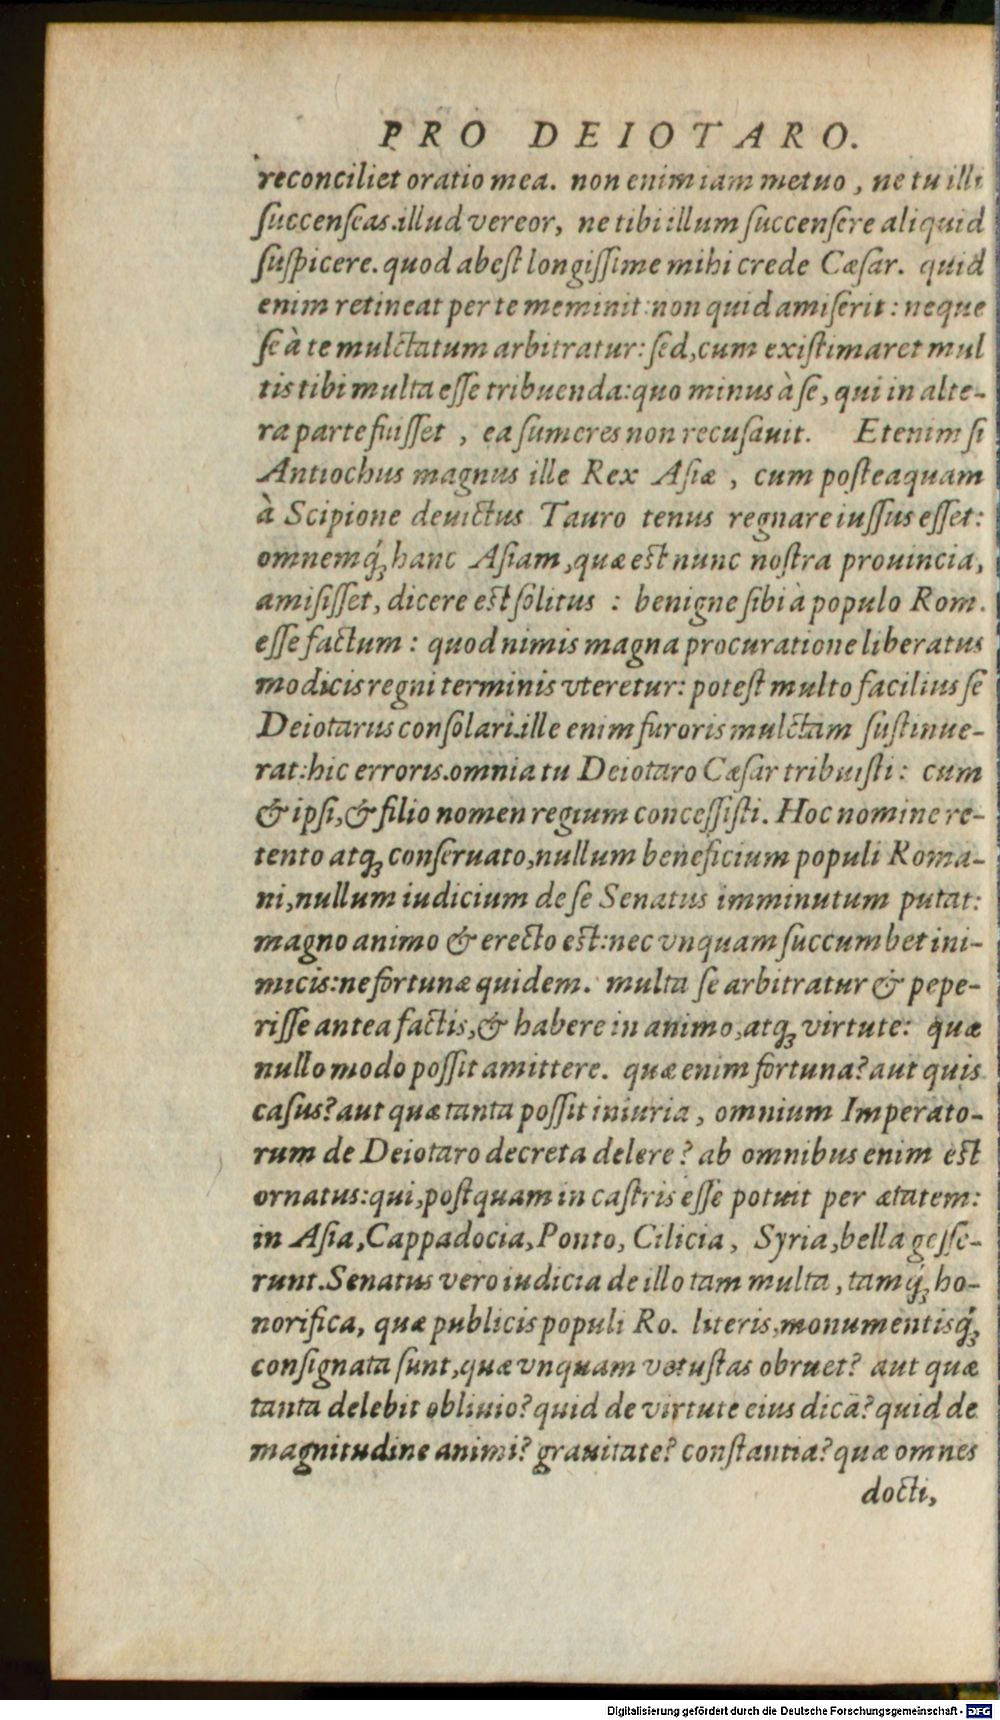 PRO DEIOTARO.
reconciliet oratio mea. non enim iam metuo, ne tu illi
ſuccenſeas. illud vereor, ne tibi illum ſuccenſere aliquid
ſuſpicere. quod abeſt longiſſime mihi crede Cæſar. quid
enim retineat per te meminit: non quid amiſerit: neque
ſe à te mulctatum arbitratur: ſed, cum exiſtimaret mul
tis tibi multa eſſe tribuenda: quo minus à ſe, qui in alte-
ra parte fuiſſet, ea ſumeres non recuſauit. Etenim ſi
Antiochus magnus ille Rex Aſiæ, cum poſteaquam
à Scipione deuictus Tauro tenus regnare iuſſus eſſet:
omnemq́; hanc Aſiam, quæ eſt nunc noſtra prouincia,
amiſiſſet, dicere eſt ſolitus: benigne ſibi à populo Rom.
eſſe factum: quod nimis magna procuratione liberatus
modicis regni terminis vteretur: poteſt multo facilius ſe
Deiotarus conſolari. ille enim furoris mulctam ſuſtinue-
rat: hic erroris. omnia tu Deiotaro Cæſar tribuiſti: cum
& ipſi, & filio nomen regium conceſſiſti. Hoc nomine re-
tento atq; conſeruato, nullum beneficium populi Roma-
ni, nullum iudicium de ſe Senatus imminutum putat:
magno animo & erecto eſt: nec vnquam ſuccumbet ini-
micis: ne fortunæ quidem. multa ſe arbitratur & pepe-
riſſe antea factis, & habere in animo, atq; virtute: quæ
nullo modo poſſit amittere. quæ enim fortuna? aut quis
caſus? aut quæ tanta poſſit iniuria, omnium Imperato-
rum de Deiotaro decreta delere? ab omnibus enim eſt
ornatus: qui, poſtquam in caſtris eſſe potuit per ætatem:
in Aſia, Cappadocia, Ponto, Cilicia, Syria, bella geſſe-
runt. Senatus vero iudicia de illo tam multa, tamq́; ho-
norifica, quæ publicis populi Ro. literis, monumentisq́;
conſignata ſunt, quæ vnquam vetuſtas obruet? aut quæ
tanta delebit obliuio? quid de virtute eius dicā? quid de
magnitudine animi? grauitate? conſtantia? quæ omnes
docti,
Digitalisierung gefördert durch die Deutsche Forschungsgemeinschaft - DFG